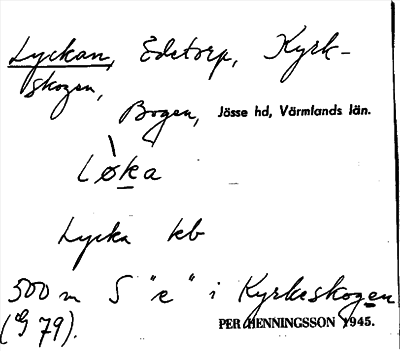 Lyckan, Edetorp, Kyrk-
skogen,
Bogen, Jösse hd, Värmlands län.
Løka
Lycka kb
500 m S "e" i Kyrkeskogen
(G 79). PER HENNINGSSON 1945.